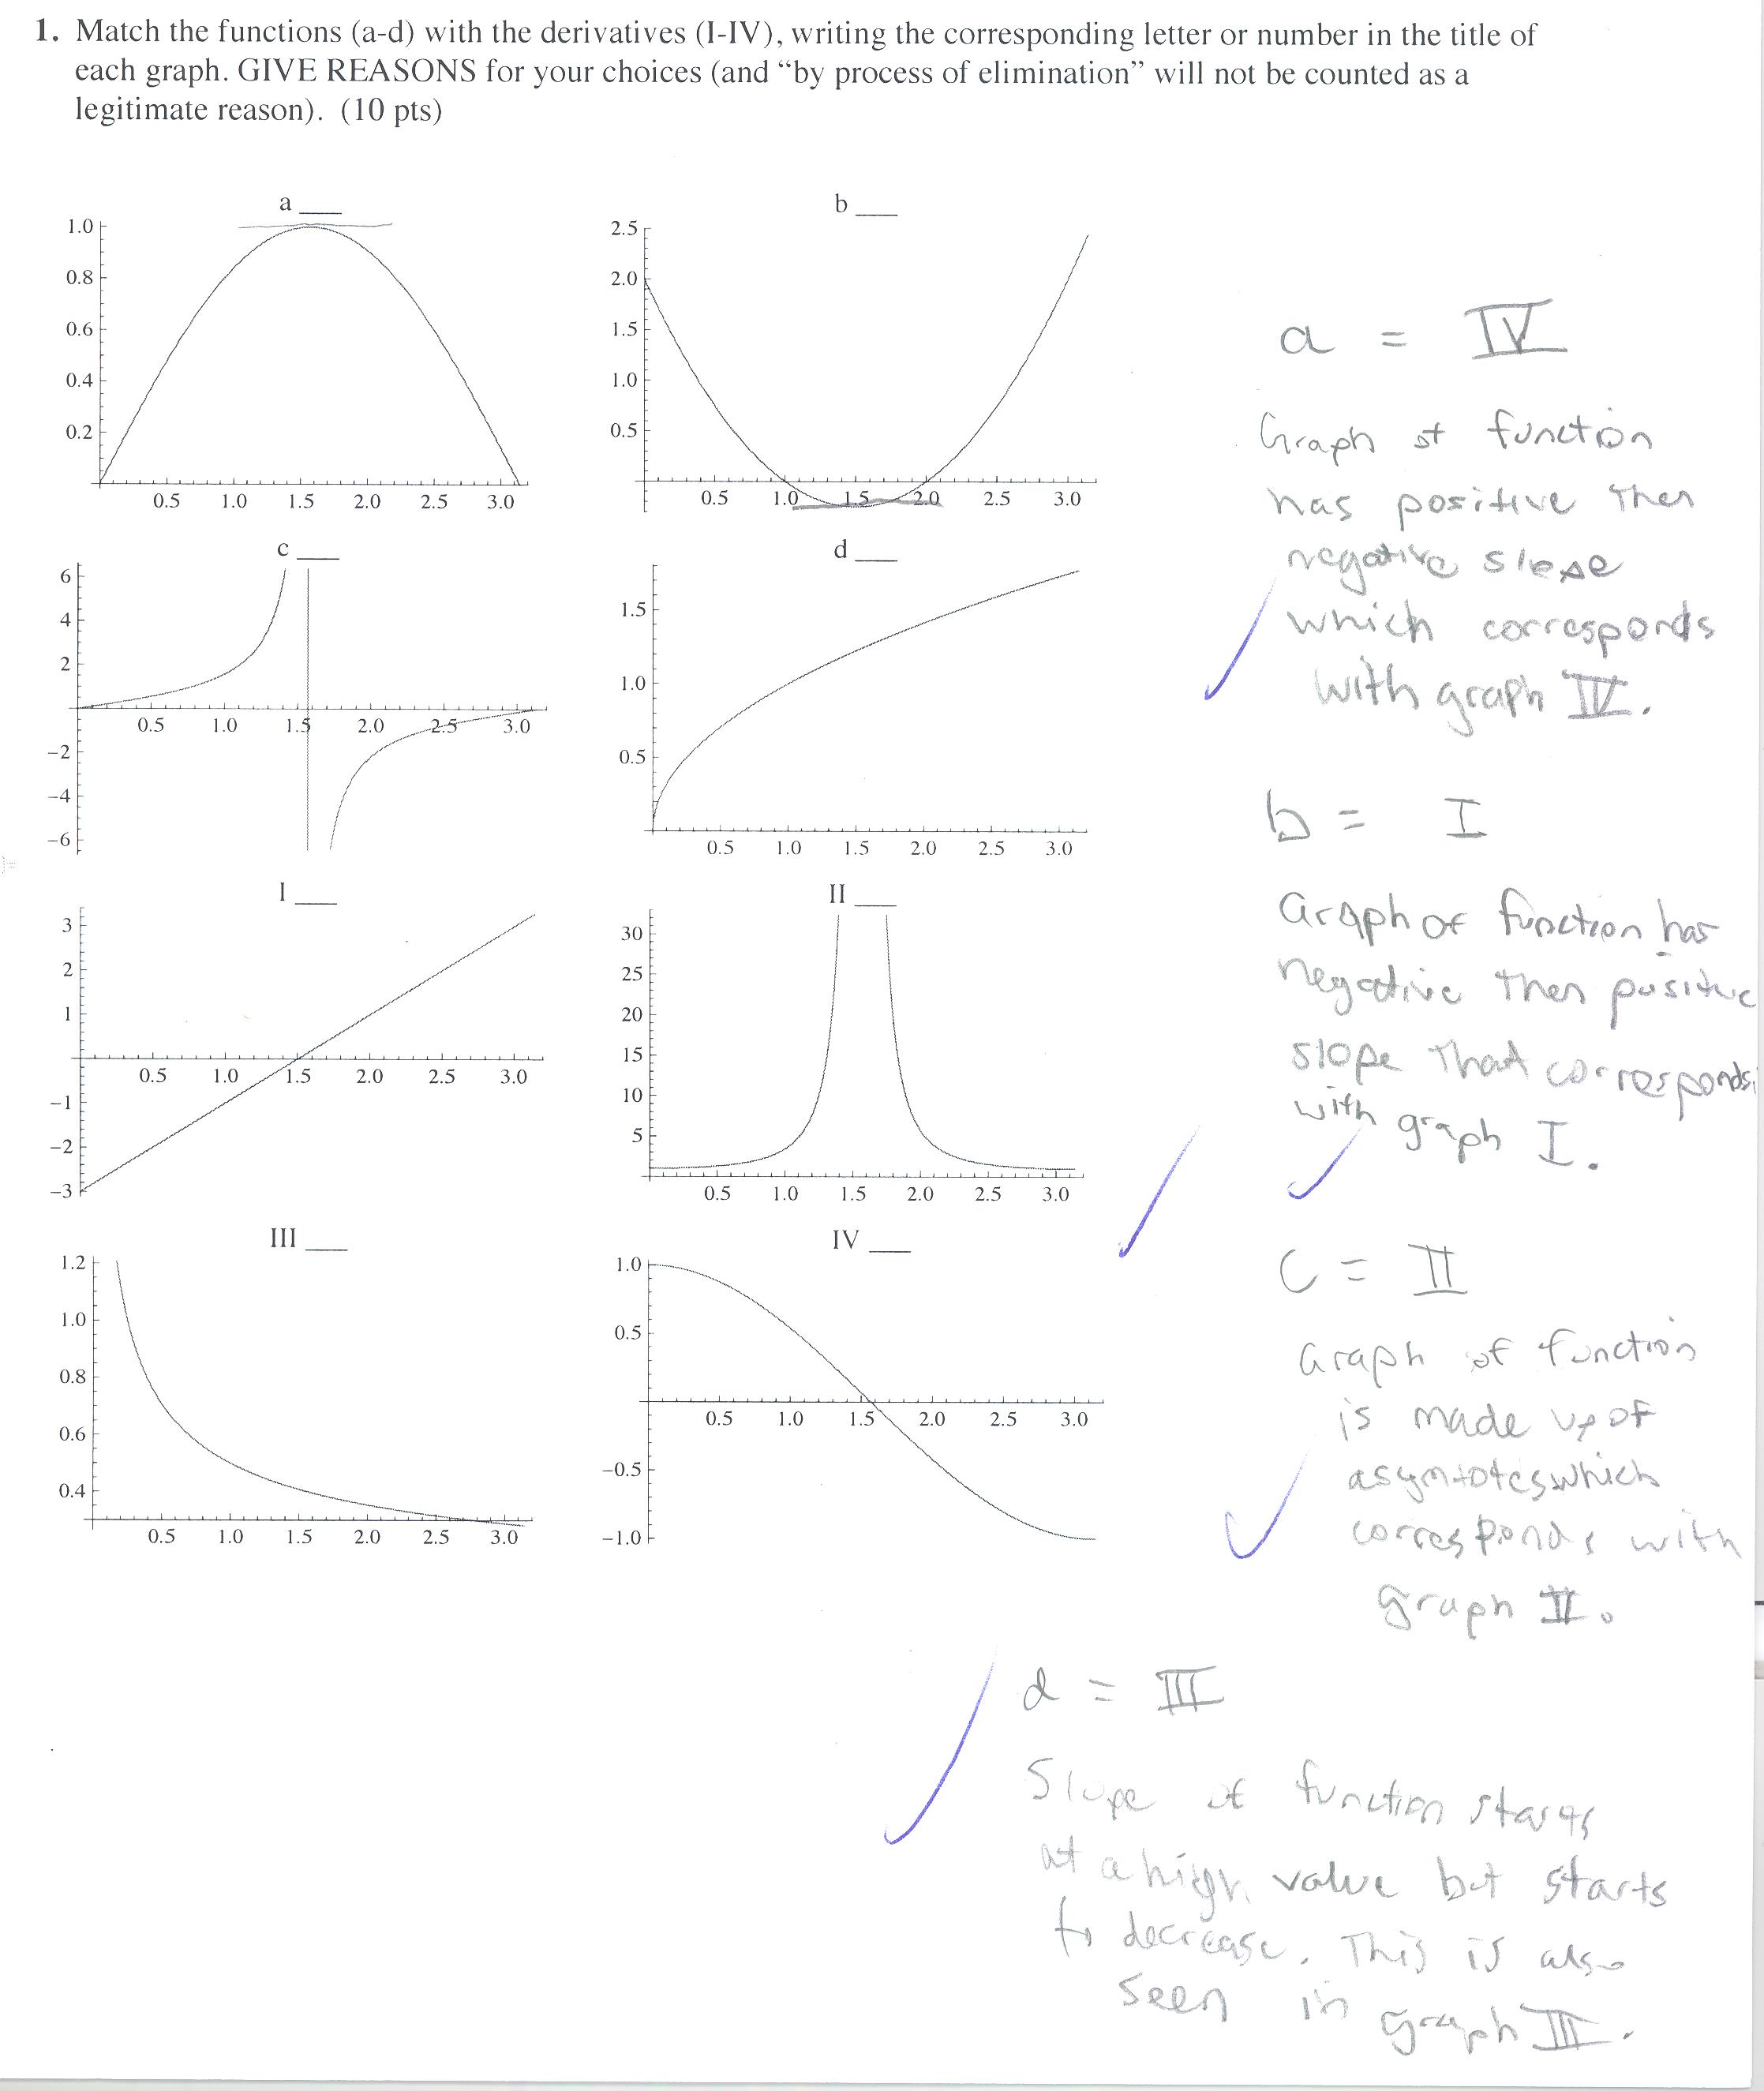 1. Match the functions (a-d) with the derivatives (I-IV), writing the corresponding letter or number in the title of
each graph. GIVE REASONS for your choices (and “by process of elimination” will not be counted as a
legitimate reason). (10 pts)
a ___
1.0
0.8
0.6
0.4
0.2
0.5 1.0 1.5 2.0 2.5 3.0
b ___
2.5
2.0
1.5
1.0
0.5
0.5 1.0 1.5 2.0 2.5 3.0
c ___
6
4
2
−2
−4
−6
0.5 1.0 1.5 2.0 2.5 3.0
d ___
1.5
1.0
0.5
0.5 1.0 1.5 2.0 2.5 3.0
I ___
3
2
1
−1
−2
−3
0.5 1.0 1.5 2.0 2.5 3.0
II ___
30
25
20
15
10
5
0.5 1.0 1.5 2.0 2.5 3.0
III ___
1.2
1.0
0.8
0.6
0.4
0.5 1.0 1.5 2.0 2.5 3.0
IV ___
1.0
0.5
−0.5
−1.0
0.5 1.0 1.5 2.0 2.5 3.0
a = IV
Graph of function
has positive then
negative slope
which corresponds
with graph IV.
b = I
Graph of function has
negative then positive
slope that corresponds
with graph I.
c = II
Graph of function
is made up of
asymtotes which
corresponds with
graph II.
d = III
Slope of function starts
at a high value but starts
to decrease. This is also
seen in graph III.